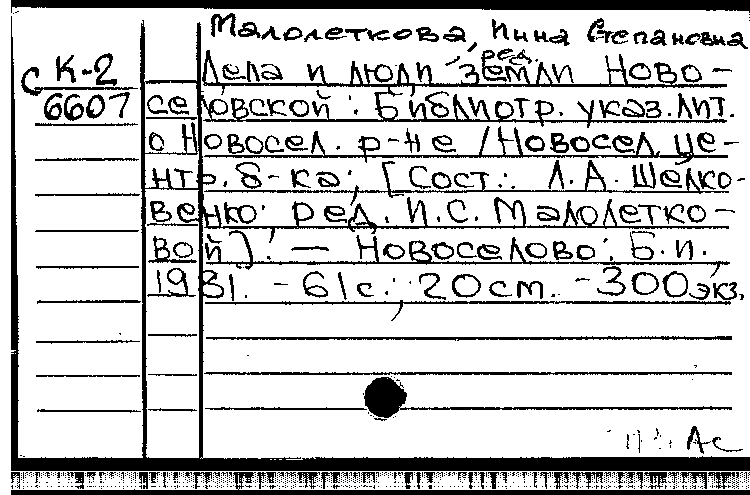 Малолеткова, Инна Степановна
ред.
С К-2 Дела и люди земли Ново-
6607 селовской: Библиогр. указ. лит.
о Новосел. р-не / Новосел. це-
нтр. б-ка; [Сост.: Л.А. Шелко-
венко; ред. И.С. Малолетко-
вой]. — Новоселово: Б.и.,
1981. - 61с.; 20см. - 300экз.
Ас